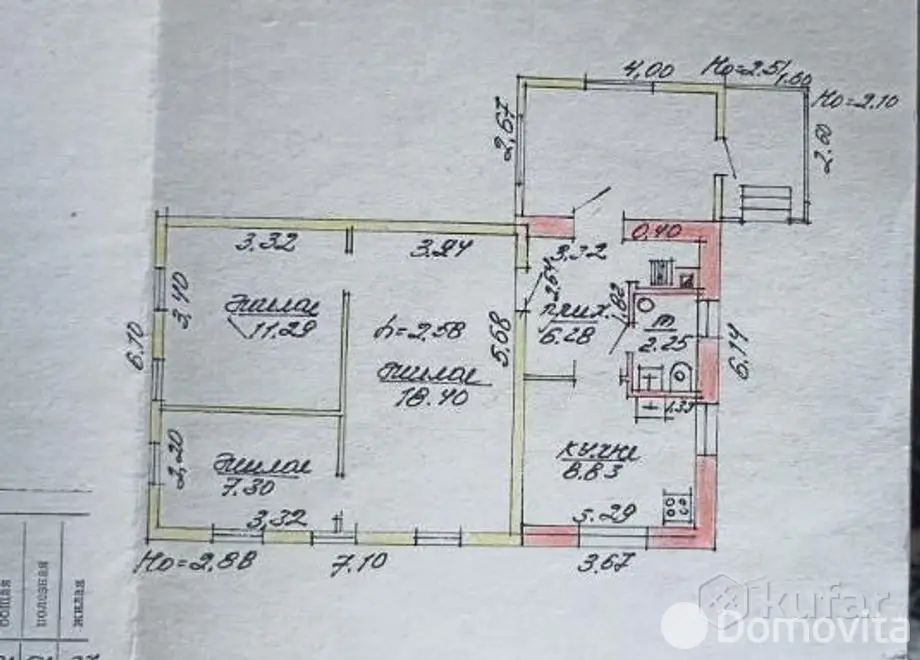 4,00
Но=2.51
1.60
Но=2.10
2,67
2.60
3,32
3.24
3,32
0,40
2.64
3,40
жилое
11.29
h=2.58
5.68
прих.
6.28
1.82
т
2.25
6.10
6.14
жилое
18.40
1.33
кухня
8.83
2,20
жилое
7.30
3,32
3.29
Но=2,88
7.10
3.67
общая
полезная
жилая
kufar
Domovita